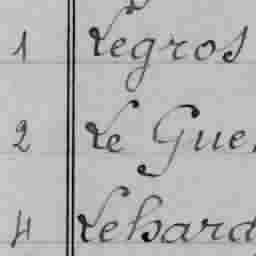 1 Legros
2 Le Gue
4 Lehard